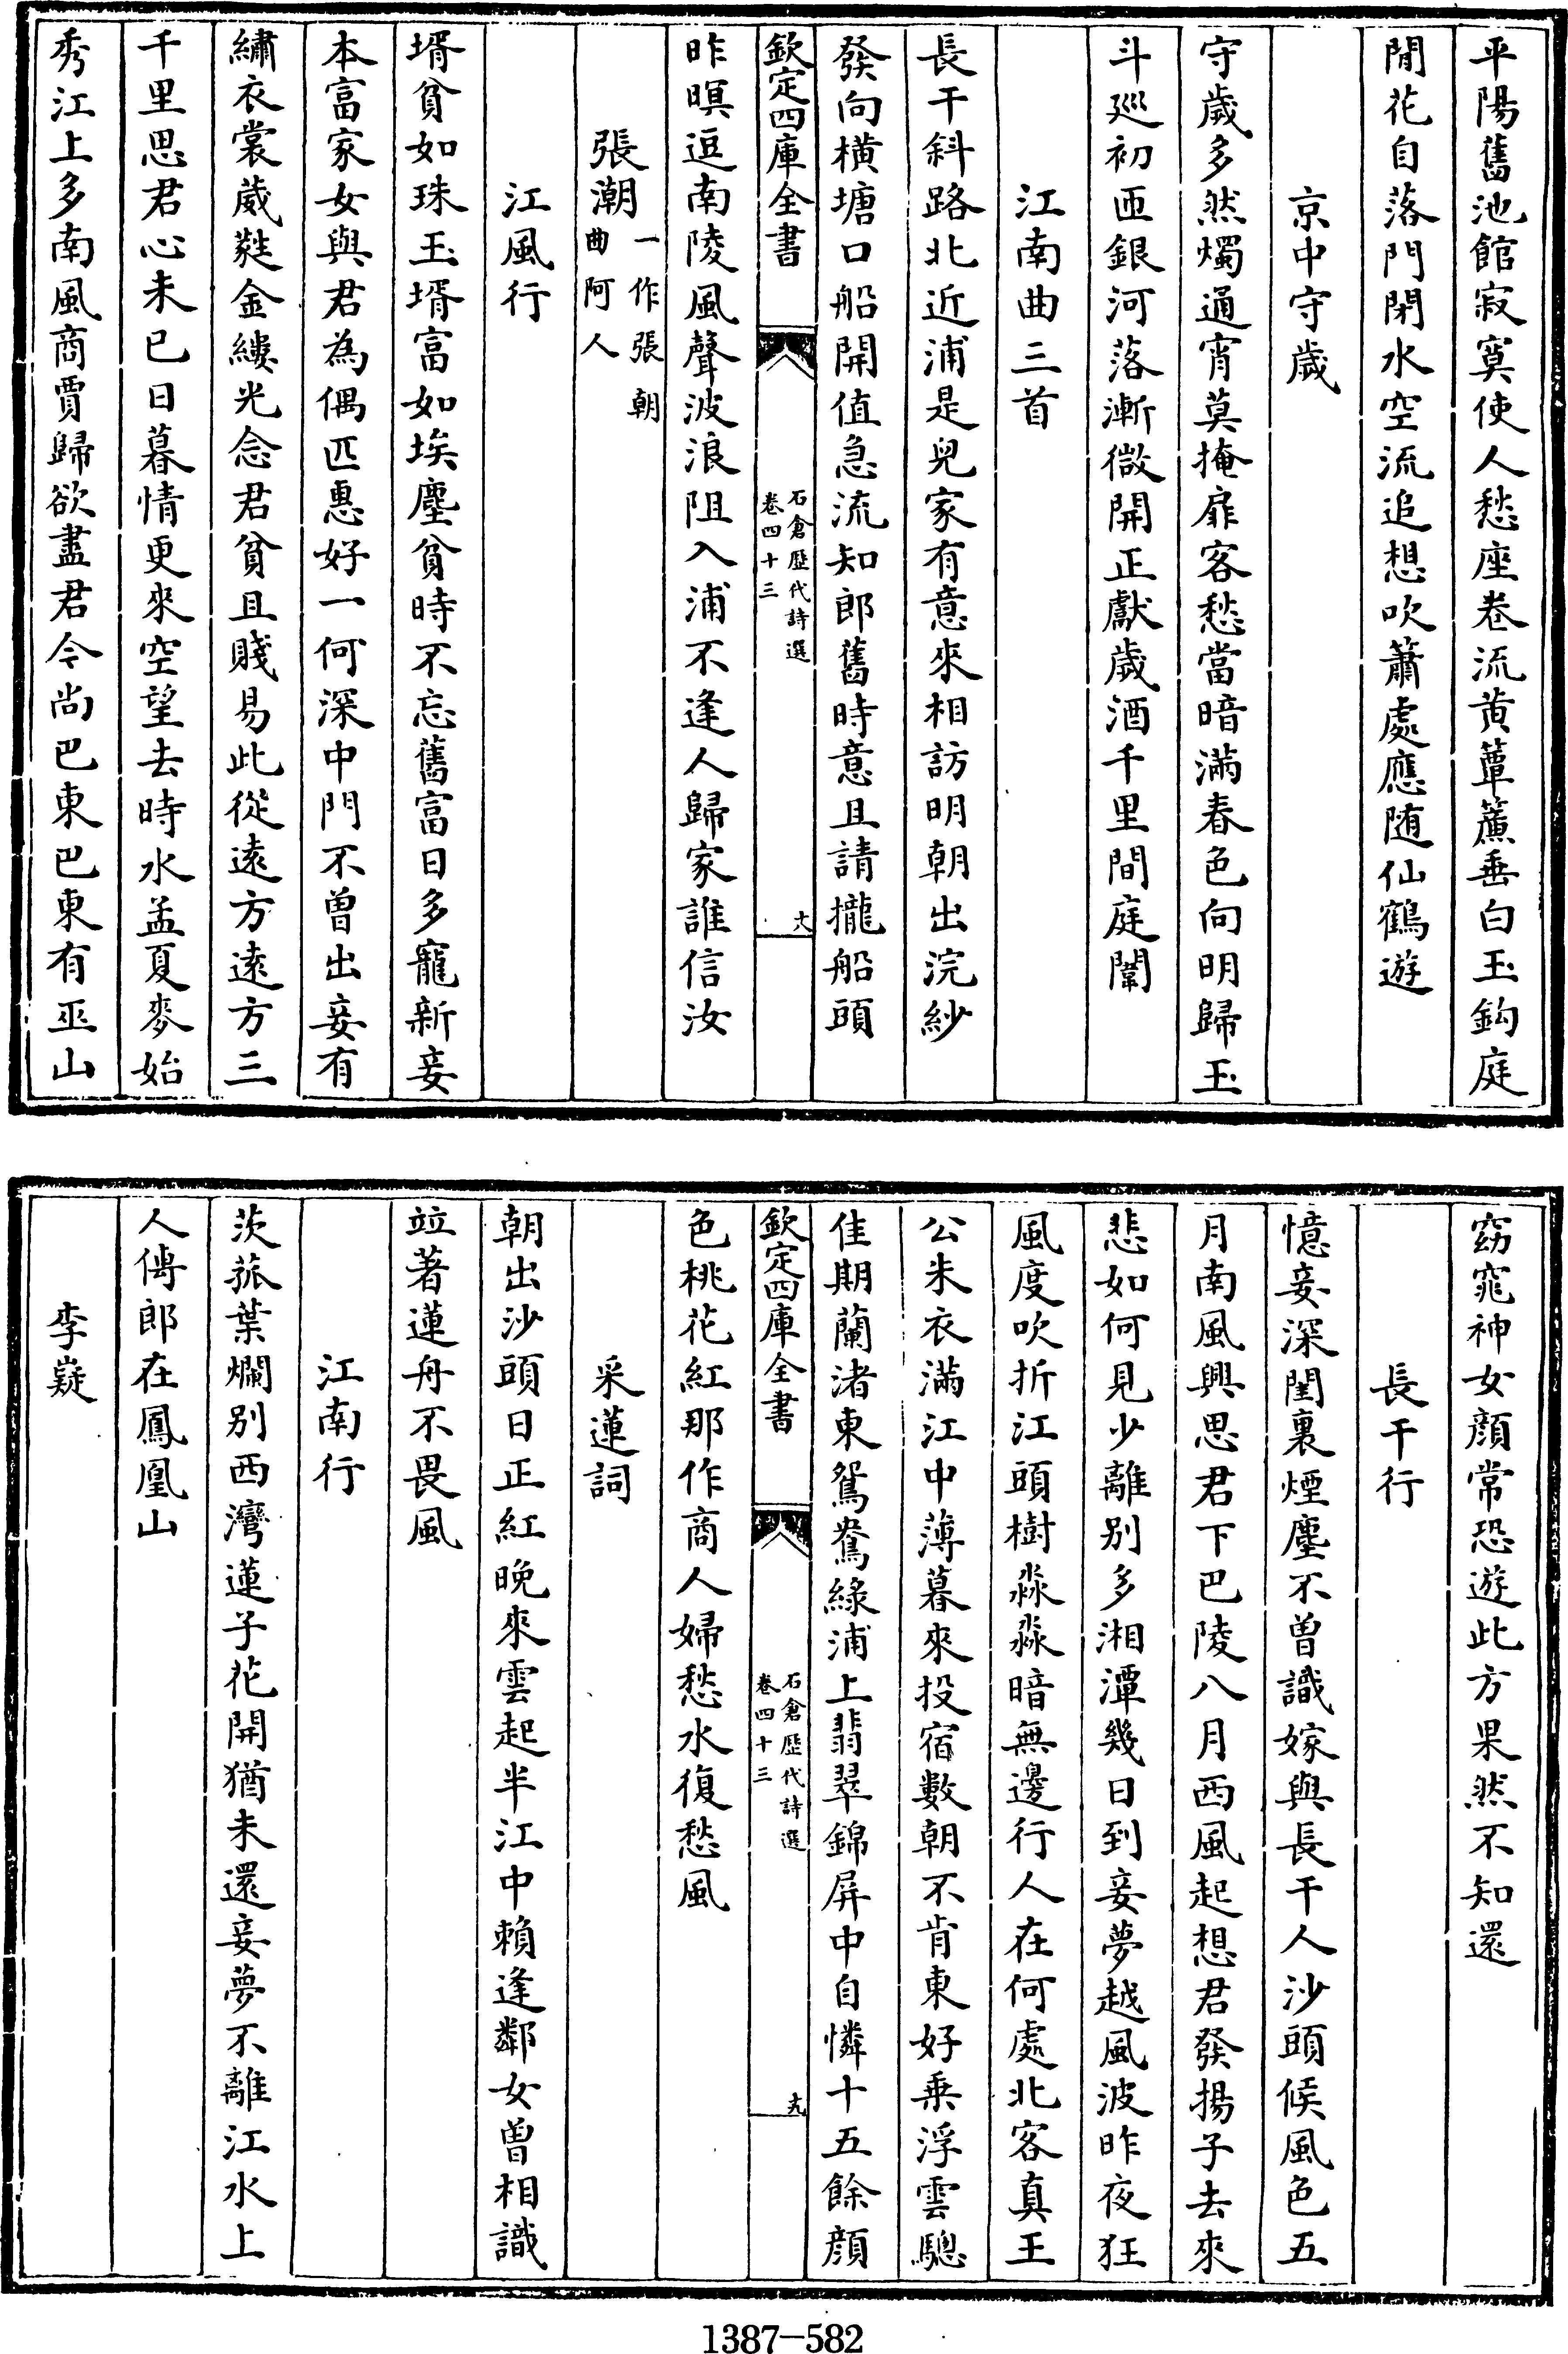 平陽舊池館寂寞使人愁座卷流黄蕈簾垂白玉鈎庭
閒花自落門閉水空流追想吹簫處應随仙鶴遊
京中守歲
守歲多然燭通宵莫掩扉客愁當暗滿春色向明歸玉
斗廵初匝銀河落漸微開正獻歲酒千里間庭闈
江南曲三首
長干斜路北近浦是兒家有意來相訪明朝出浣紗
發向横塘口船開值急流知郎舊時意且請攏船頭
欽定四庫全書
石倉歴代詩選
卷四十三
大
昨暝逗南陵風聲波浪阻入浦不逢人歸家誰信汝
張潮一作張朝曲阿人
江風行
壻貧如珠玉壻富如埃塵貧時不忘舊富日多寵新妾
本富家女與君為偶匹惠好一何深中門不曾出妾有
繡衣裳葳蕤金縷光念君貧且賤易此從遠方遠方三
千里思君心未已日暮情更來空望去時水孟夏麥始
秀江上多南風商賈歸欲盡君今尚巴東巴東有巫山
窈窕神女顔常恐遊此方果然不知還
長干行
憶妾深閨裏煙塵不曾識嫁與長干人沙頭候風色五
月南風興思君下巴陵八月西風起想君發揚子去來
悲如何見少離别多湘潭幾日到妾夢越風波昨夜狂
風度吹折江頭樹淼淼暗無邊行人在何處北客真王
公朱衣滿江中薄暮來投宿數朝不肯東好乗浮雲驄
佳期蘭渚東鴛鴦緑浦上翡翠錦屏中自憐十五餘顔
欽定四庫全書
石倉歴代詩選
卷四十三
大九
色桃花紅那作商人婦愁水復愁風
采蓮詞
朝出沙頭日正紅晩來雲起半江中賴逢鄰女曾相識
竝著蓮舟不畏風
江南行
茨菰葉爛别西灣蓮子花開猶未還妾夢不離江水上
人傳郎在鳳凰山
李嶷
1387-582